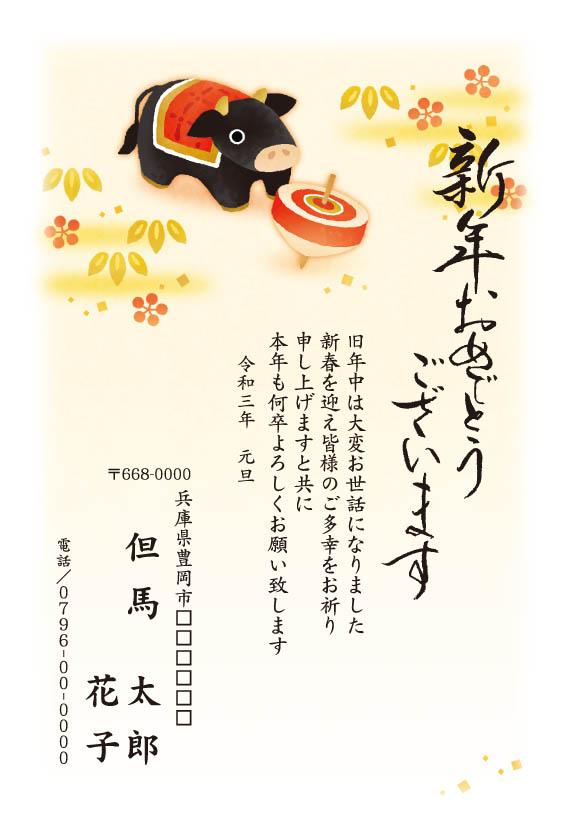 新年おめでとう
ございます
旧年中は大変お世話になりました
新春を迎え皆様のご多幸をお祈り
申し上げますと共に
本年も何卒よろしくお願い致します
令和三年　元旦
〒668-0000
兵庫県豊岡市□□□□□□
但馬　太郎
花子
電話／0796-00-0000